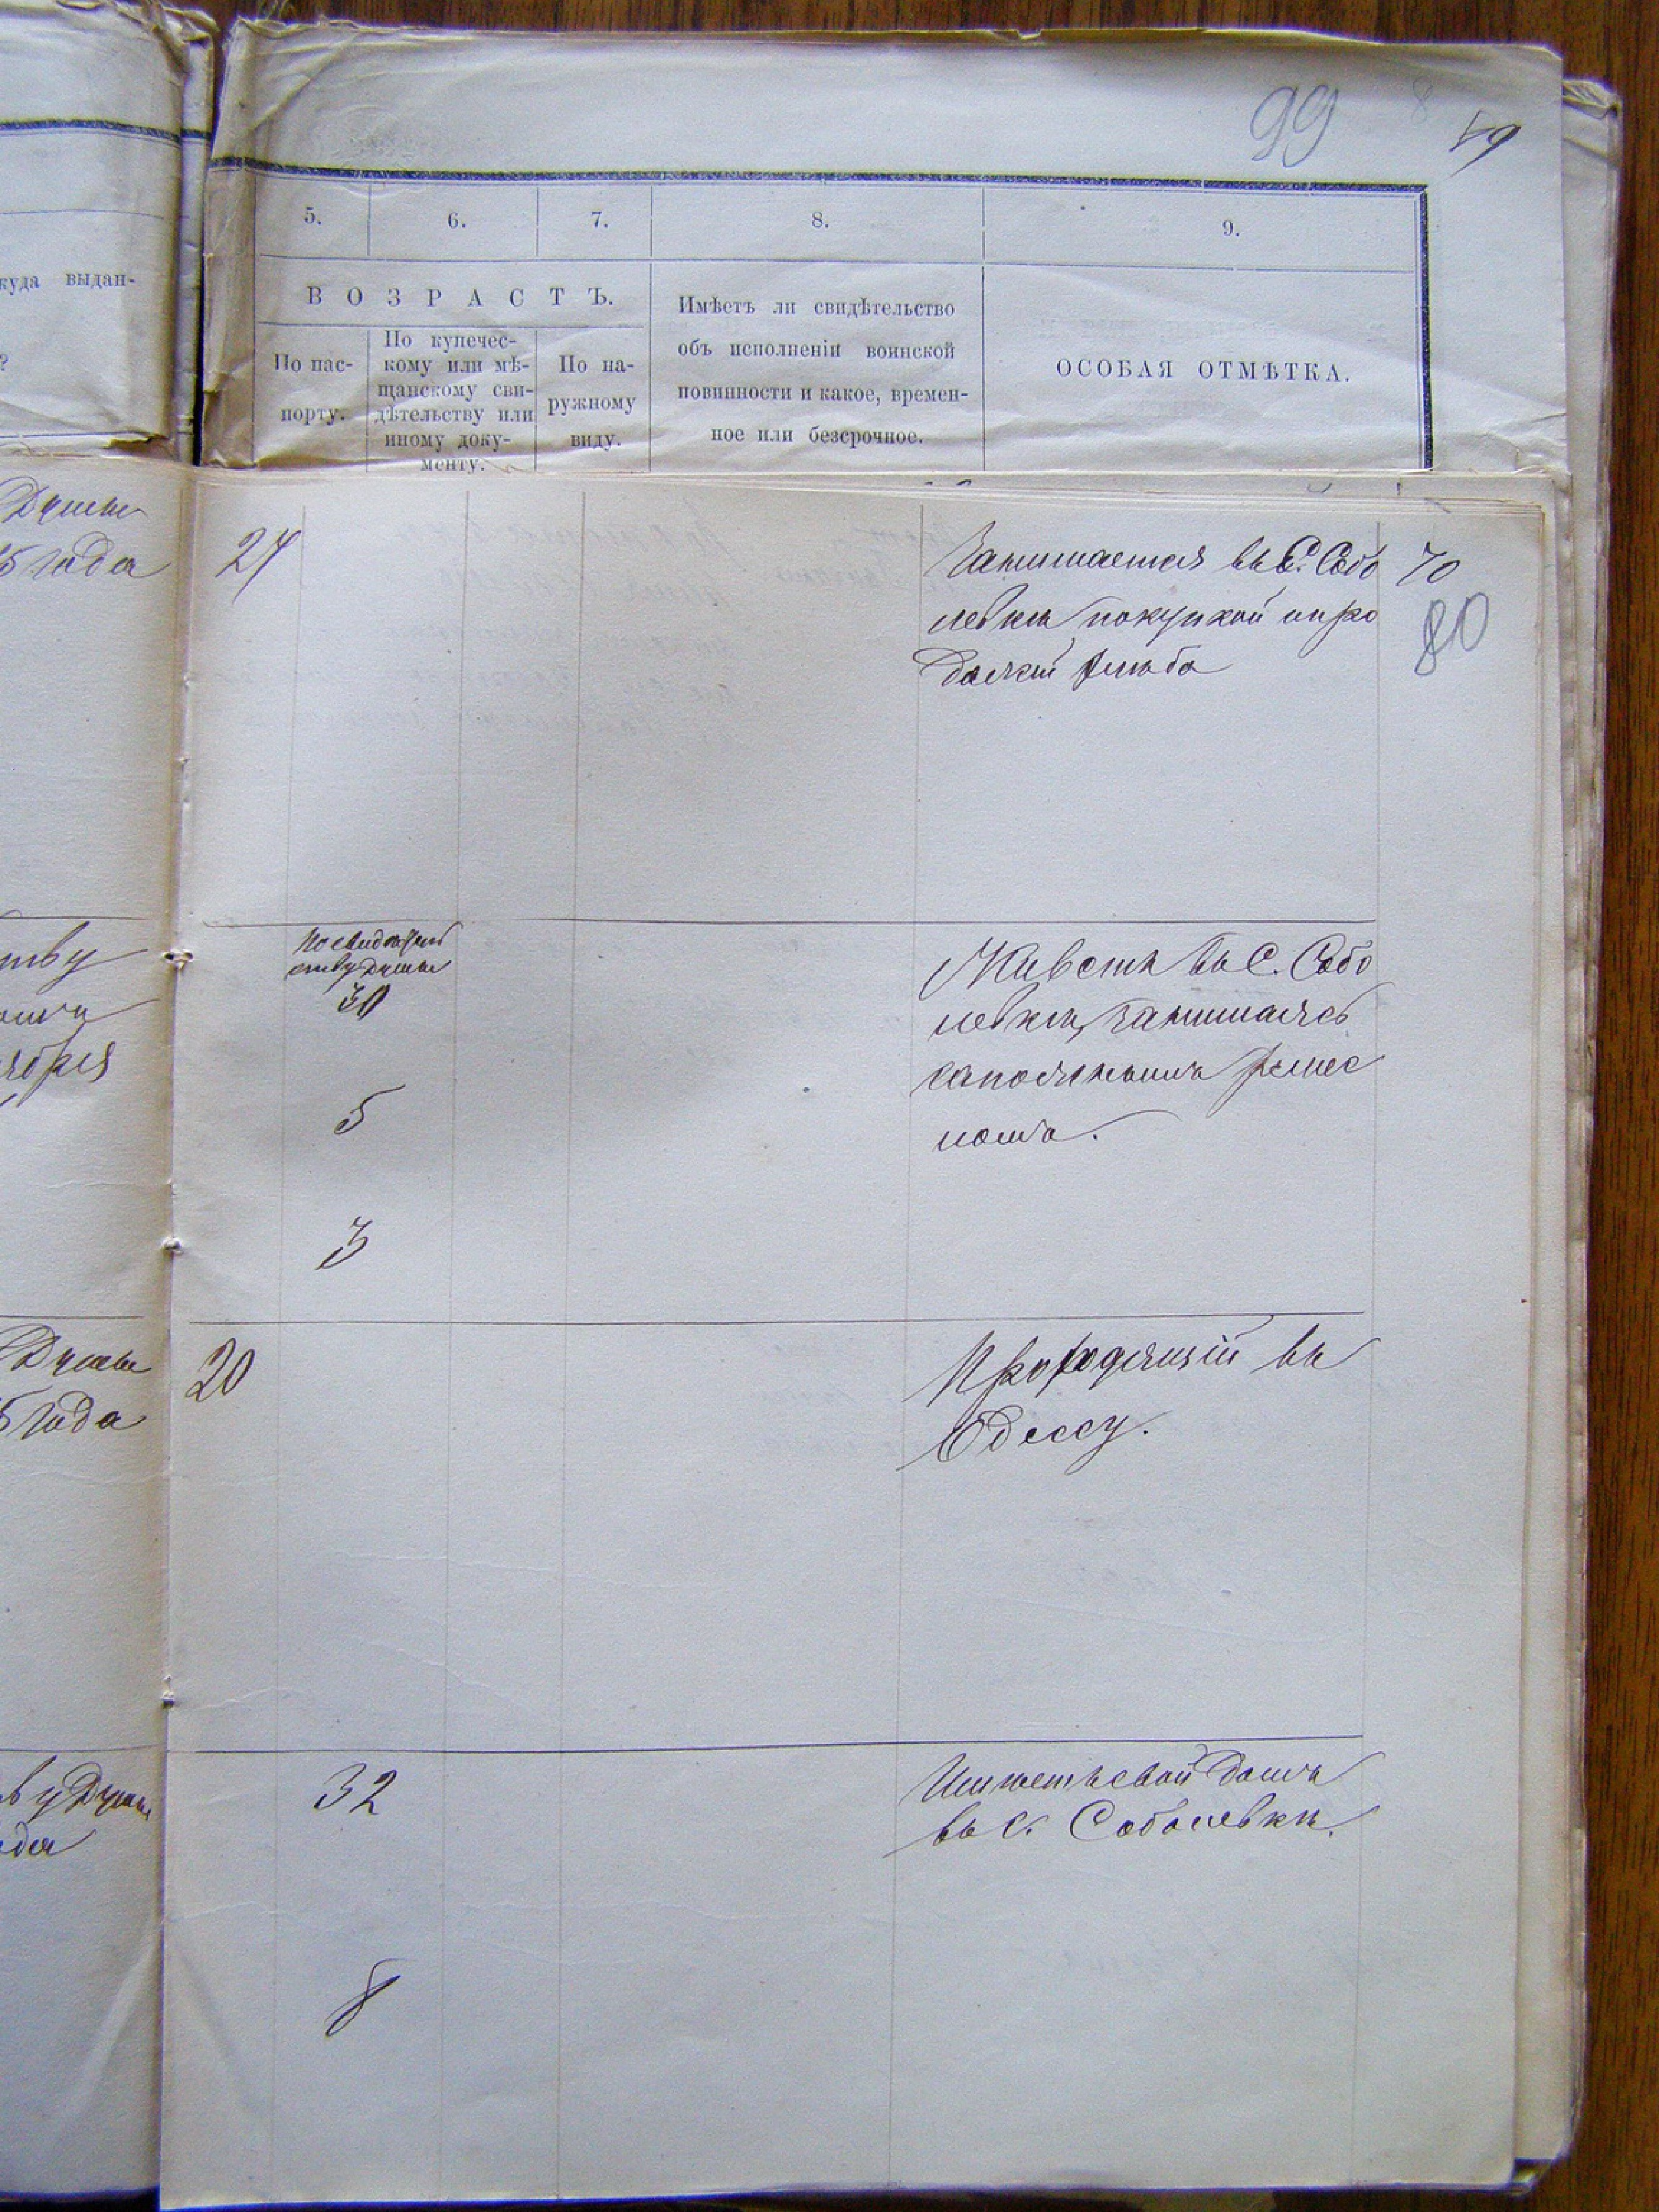 99
69
куда выдан-
?
5.
6.
7.
8.
9.
ВОЗРАСТЪ.
По пас-
порту.
По купечес-
кому или мѣ-
щанскому сви-
дѣтельству или
иному доку-
менту.
По на-
ружному
виду.
Имѣетъ ли свидѣтельство
объ исполненіи воинской
повинности и какое, времен-
ное или безсрочное.
ОСОБАЯ ОТМѢТКА.
Думы
5 года
24
Занимается въ С. Собо
левкѣ покупкой и про
дажей хлѣба
70
80
тву
ября
По свидѣтель
ству Думы
30
5
3
Живетъ въ С. Собо
левкѣ, занимаясь
сапожнымъ ремес
ломъ.
Думы
5 года
20
Проходящій въ
Одессу.
ву Думы
ода
32
8
Имѣетъ свой домъ
въ с. Соболевкѣ.